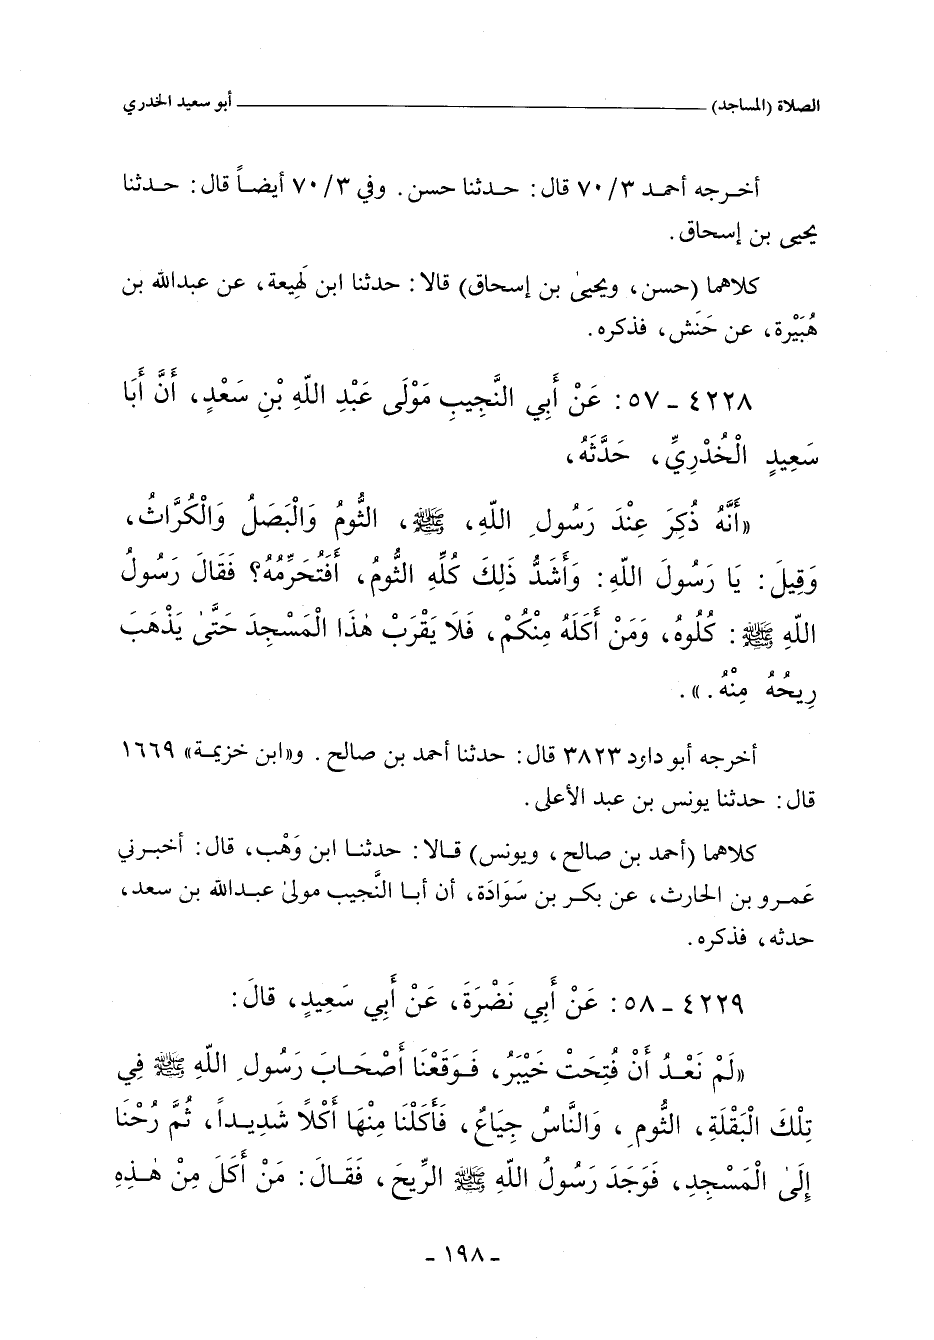 الصلاة (المساجد) ــــــــــــــــــــــــــــــــ أبو سعيد الخدري
أخـرجه أحمـد ٣/ ٧٠ قال: حـدثنا حسن. وفي ٣/ ٧٠ أيضـاً قال: حـدثنا
يحيى بن إسحاق.
كلاهما (حسن، ويحيىٰ بن إسحاق) قالا: حدثنا ابن لَهيعة، عن عبدالله بن
هُبَيْرة، عن حَنَش، فذكره.
٤٢٢٨ ـ ٥٧: عَنْ أَبِي النَّجِيبِ مَوْلَى عَبْدِ اللّهِ بْنِ سَعْدٍ، أَنَّ أَبَا
سَعِيدٍ الْخُدْرِيِّ، حَدَّثَهُ،
«أَنَّهُ ذُكِرَ عِنْدَ رَسُولِ اللّهِ، ﷺ، الثُّومُ وَالْبَصَلُ وَالْكُرَّاثُ،
وَقِيلَ: يَا رَسُولَ اللّهِ: وَأَشَدُّ ذَلِكَ كُلِّهِ الثُّومُ، أَفَتُحَرِّمُهُ؟ فَقَالَ رَسُولُ
اللّهِ ﷺ: كُلُوهُ، وَمَنْ أَكَلَهُ مِنْكُمْ، فَلَا يَقْرَبْ هٰذَا الْمَسْجِدَ حَتَّىٰ يَذْهَبَ
رِيحُهُ مِنْهُ.».
أخرجه أبو داود ٣٨٢٣ قال: حدثنا أحمد بن صالح. و«ابن خزيمـة» ١٦٦٩
قال: حدثنا يونس بن عبد الأعلى.
كلاهما (أحمد بن صالح، ويونس) قـالا: حدثنـا ابن وَهْب، قال: أخبـرني
عَمـرو بن الحارث، عن بكـر بن سَوَادَة، أن أبـا النَّجيب مولىٰ عبـدالله بن سعد،
حدثه، فذكره.
٤٢٢٩ ـ ٥٨: عَنْ أَبِي نَضْرَةَ، عَنْ أَبِي سَعِيدٍ، قالَ:
«لَمْ نَعْـدُ أَنْ فُتِحَتْ خَيْبَرُ، فَـوَقَعْنَا أَصْحَـابَ رَسُولِ اللّهِ ﷺ فِي
تِلْكَ الْبَقْلَةِ، الثُّومِ، وَالنَّاسُ جِيَاعٌ، فَأَكَلْنَا مِنْهَا أَكْلًا شَدِيـداً، ثُمَّ رُحْنَا
إِلَىٰ الْمَسْجِدِ، فَوَجَدَ رَسُولُ اللّهِ ﷺ الرِّيحَ، فَقَـالَ: مَنْ أَكَلَ مِنْ هٰـذِهِ
ـ ١٩٨ ـ